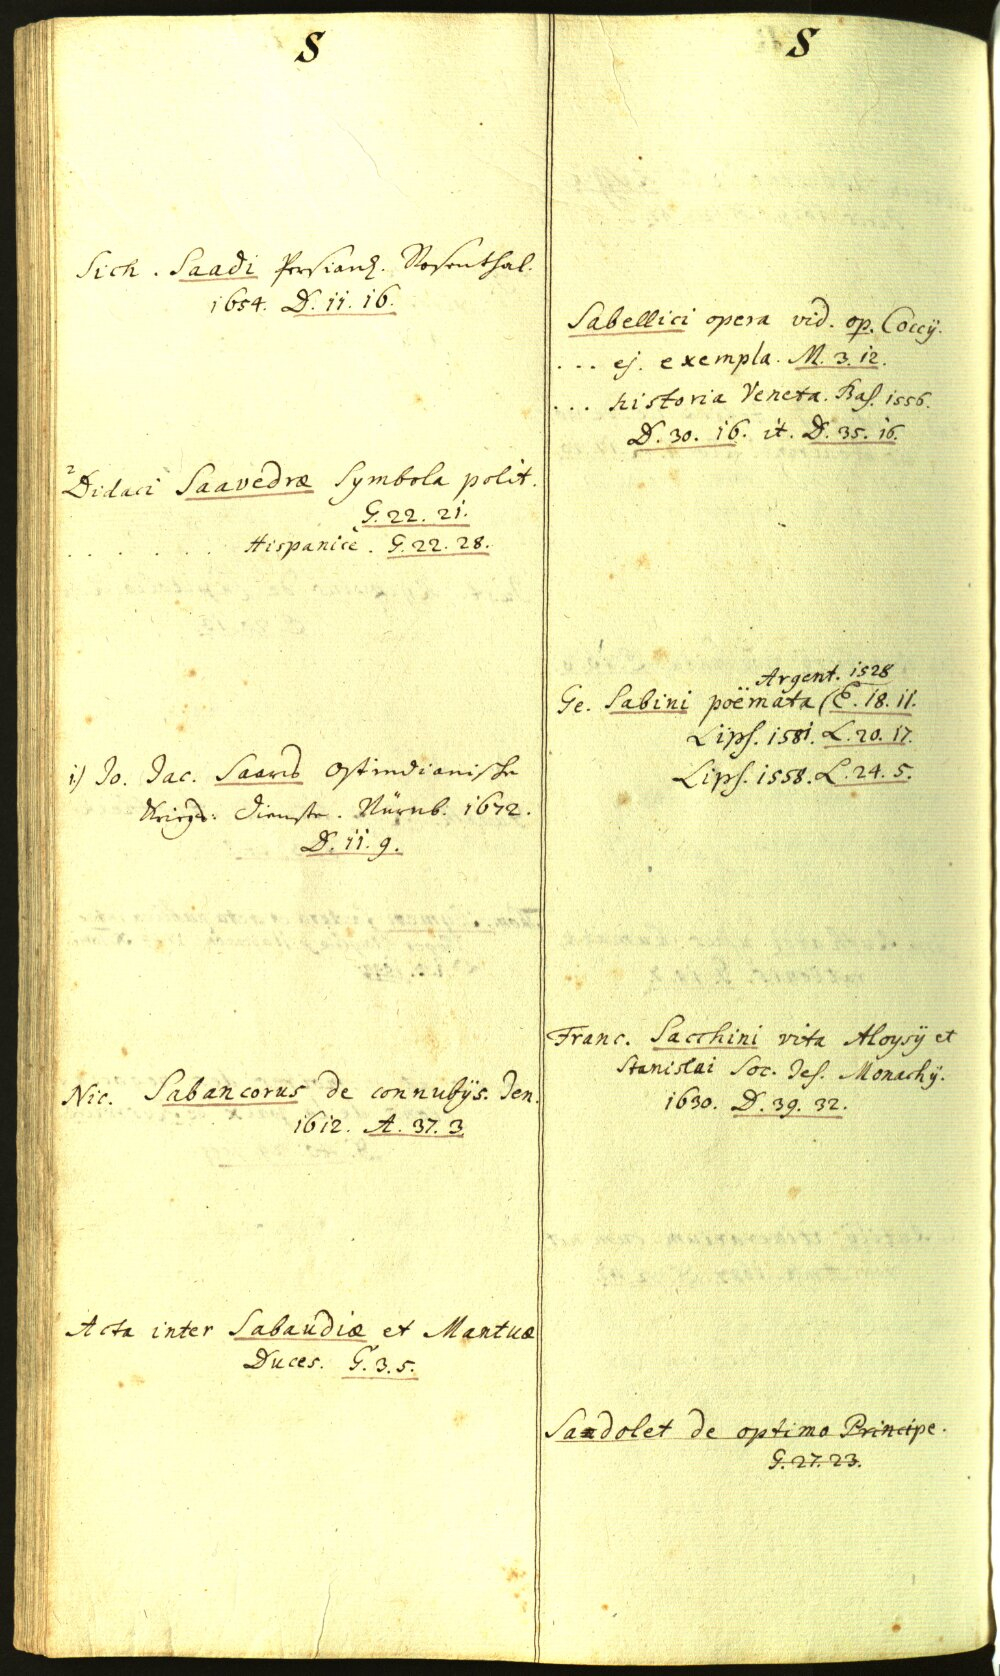 S
Sich. Saadi Persianis. Rosenthal.
1654. D. 11. 16.
2 Didaci Saavedræ Symbola polit.
G. 22. 21.
. . . . . . Hispanicè. G. 22. 28.
1) Jo. Jac. Saars Ostindianische
Kriegs: Dienste. Nürnb. 1672.
D. 11. 9.
Nic. Sabancorus de connubÿs. Jen.
1612. A. 37. 3
Acta inter Sabaudiæ et Mantuæ
Duces. G. 3. 5.
S
Sabellici opera vid. op. Coccÿ.
... ej. exempla. M. 3. 12.
... historia Veneta. Bas. 1556.
D. 30. 16. it. D. 35. 16.
Argent. 1528
Ge. Sabini poëmata (E. 18. 11.
Lips. 1581. L. 20. 17.
Lips. 1558. L. 24. 5.
Franc. Sacchini vita Aloysÿ et
Stanislai Soc. Jes. Monachÿ.
1630. D. 39. 32.
Sadolet de optimo Principe.
G. 27. 23.